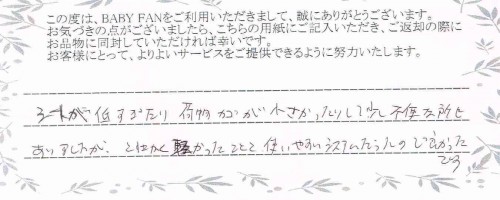 この度は、BABY FANをご利用いただきまして、誠にありがとうございます。
お気づきの点がございましたら、こちらの用紙にご記入いただき、ご返却の際に
お品物に同封していただければ幸いです。
お客様にとって、よりよいサービスをご提供できるように努力いたします。
シートが低すぎたり 荷物カゴが小さかったりして少し不便な所も
ありましたが、とにかく軽かったことと使いやすいシステムだったので良かった
です